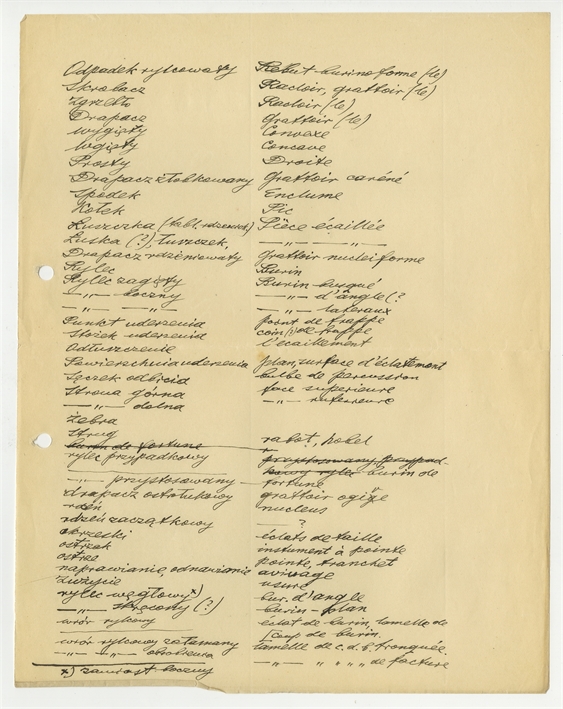 Odpadek rylcowaty Rebut-burinoforme (le)
Skrobacz Racloir, grattoir (le)
Zgrzebło Racloir (le)
Drapacz Grattoir (le)
Wygięty Convexe
Wgięty Concave
Prosty Droite
Drapacz żłobkowany Grattoir caréné
Spodek Enclume
Kołek Pic
Łuszczka (tabl. rdzeniok.) Pièce écaillée
Łuska (?), łuszczek, —„—„—
Drapacz rdzeniowaty Grattoir nucleiforme
Rylec Burin
Rylec zagięty Burin busqué
—„— boczny —„— d'angle (?
—„— „— —„— lateraux
Punkt uderzenia point de frappe
Stożek uderzenia coin (?) de frappe
Odłuszczenie l'ecaillement
Powierzchnia uderzenia plan, surface d'éclatement
Sęczek odbicia bulbe de percussion
Strona górna face superieure
—„— dolna —„— inferieure
Żebra
Strug rabot, hobel
burin de fortune
rylec przypadkowy przystosowany przypad-
kowy rylec burin de
—„— przystosowany — fortune
drapacz ostrołukowy grattoir ogive
rdzeń nucleus
rdzeń zaczątkowy —?
okrzeski éclats de taille
ostrzak instument à pointe
ostrze pointe, tranchet
naprawianie, odnawianie avivage
zużycie usure
rylec węgłowy x) bur. d'angle
—„— skręcony (?) burin-plan
wiór rylcowy éclat de burin, lamelle de
coup de burin.
wiór rylcowy załamany lamelle de c. d. b. tronquée.
—„— —„— —„— „ „ „ de facture
x) zamiast boczny